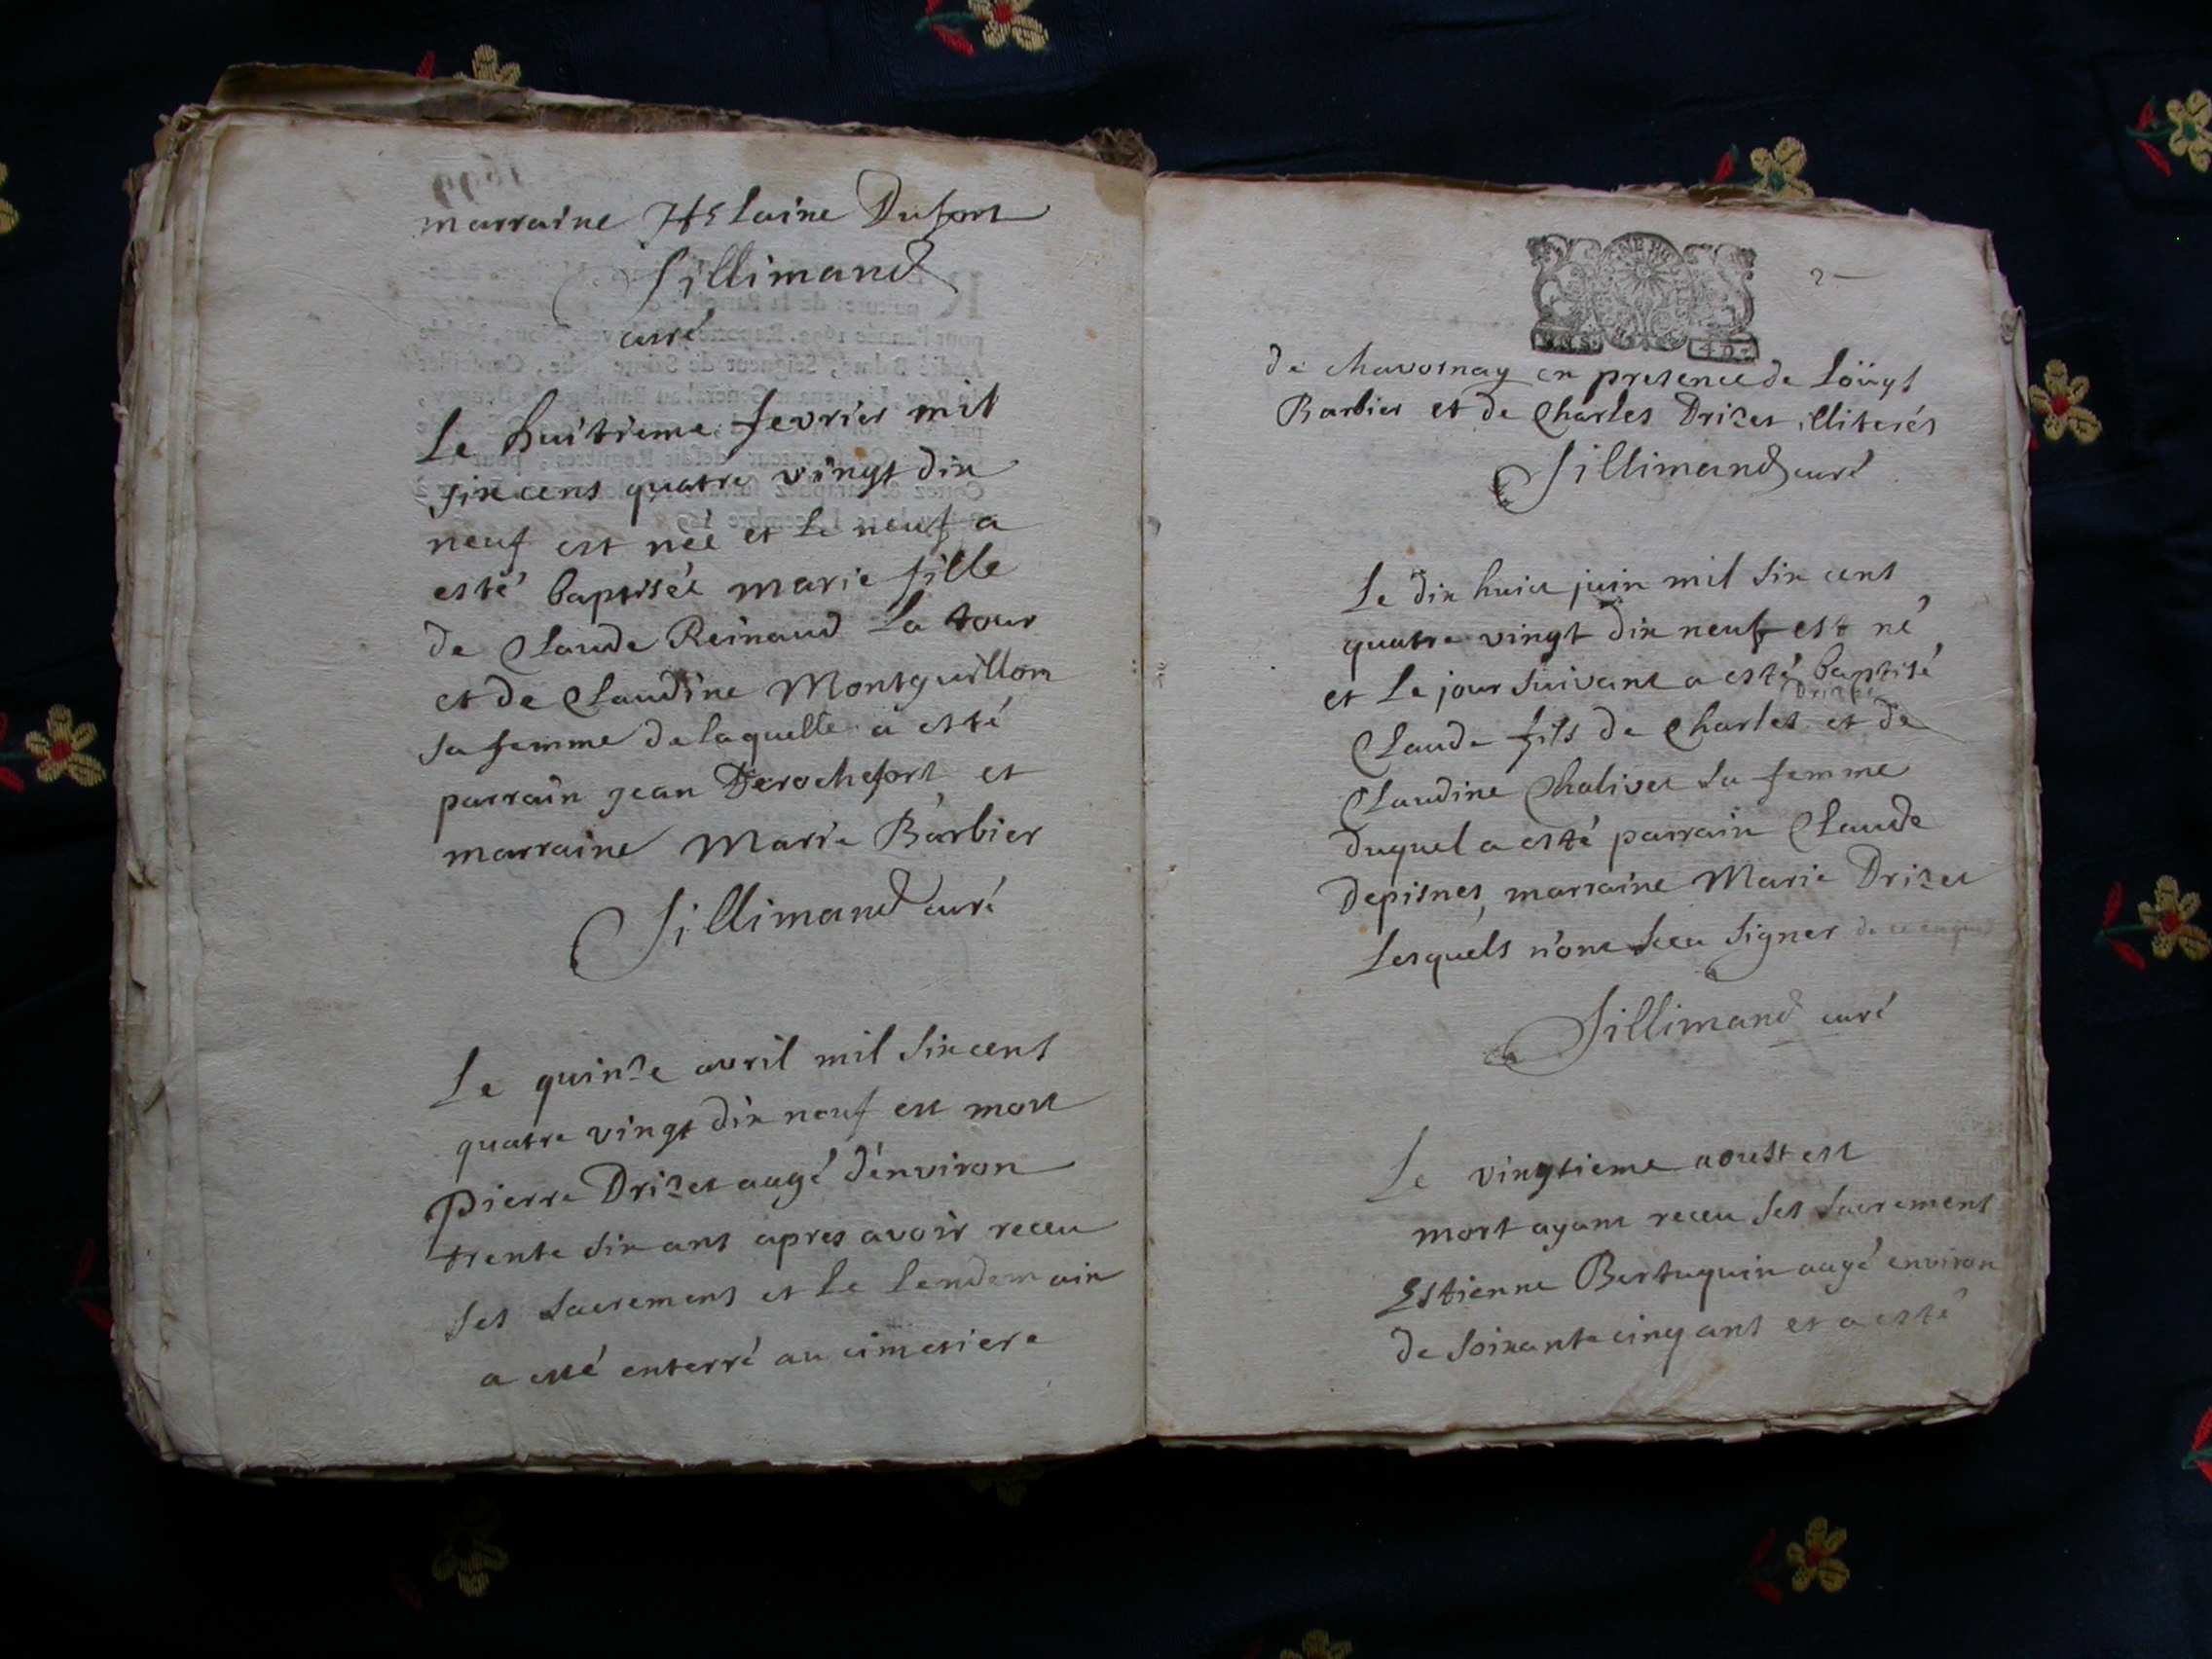 marraine Helaine Dufort
Sillimand
curé
Le huitieme fevrier mil
six cens quatre vingt dix
neuf est née et le neuf a
esté baptisée marie fille
de Claude Reinaud La tour
et de Claudine Montguillon
sa femme de laquelle a esté
parrain jean Derochefort et
marraine Marie Barbier
Sillimand curé
Le quinze avril mil six cens
quatre vingt dix neuf est mort
pierre Drizet aagé d'environ
trente six ans apres avoir receu
ses sacremens et le lendemain
a esté enterré au cimetiere
2
de chavornay en presence de Loüys
Barbier et de Charles Drizet illiterés
Sillimand curé
Le dix huict juin mil six cens
quatre vingt dix neuf est né
et le jour suivant a esté baptisé
Drizet
Claude fils de Charles et de
Claudine Chalivet sa femme
duquel a esté parrain Claude
Depisnes, marraine Marie Drizet
Lesquels n'ont sceu signer
Sillimand curé
Le vingtieme aoust est
mort ayant receu ses sacremens
Estienne Bertuquin aagé environ
de soixante cinq ans et a esté